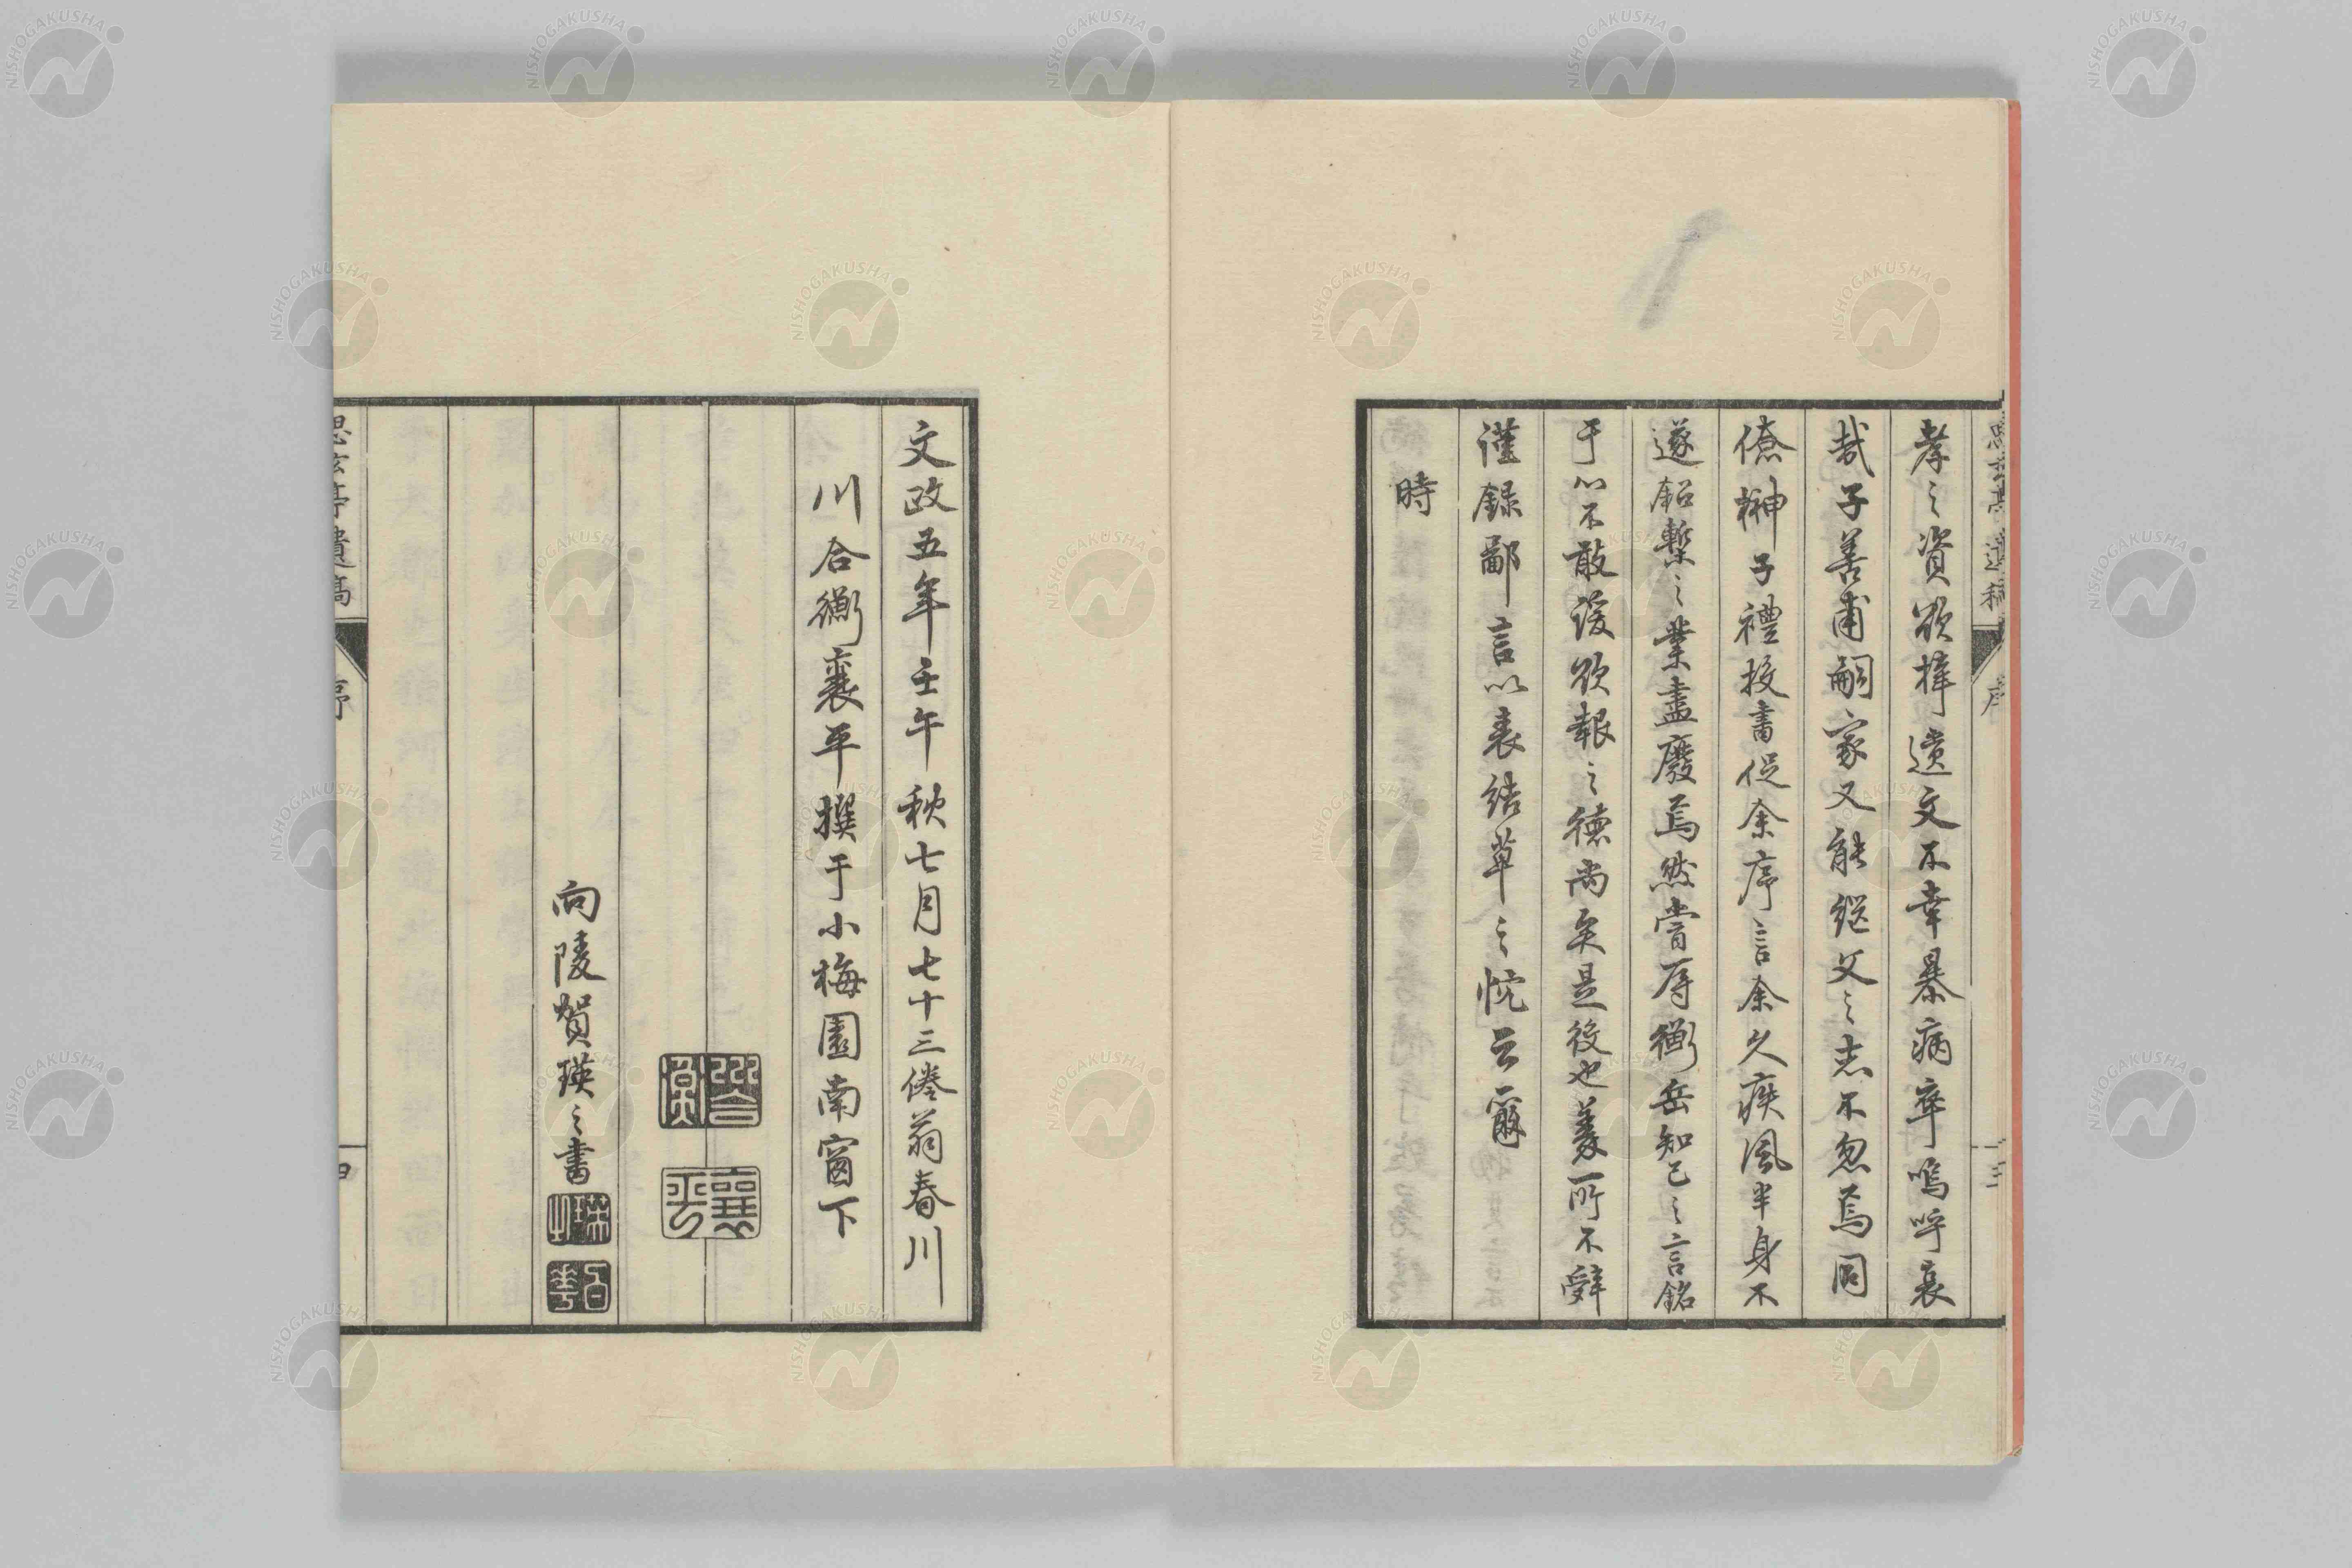 孝之資欲擇遺文不幸暴病卒嗚呼哀
哉子善甫嗣家又能継父之志不忽焉同
僚榊子禮投書促余序言余久疾風半身不
遂鉛槧之業盡廢焉然嘗辱衡岳知己之言銘
于心不敢諼欲報之德尚矣是役也義所不辭
謹録鄙言以表結草之忱云爾
時
文政五年壬午秋七月七十三倦翁春川
川合衡襄平撰于小梅園南窗下
襄平
向陵賀瑛之書
思玄亭遺稿
序
三
思玄亭遺稿
序
四
NISHOGAKUSHA